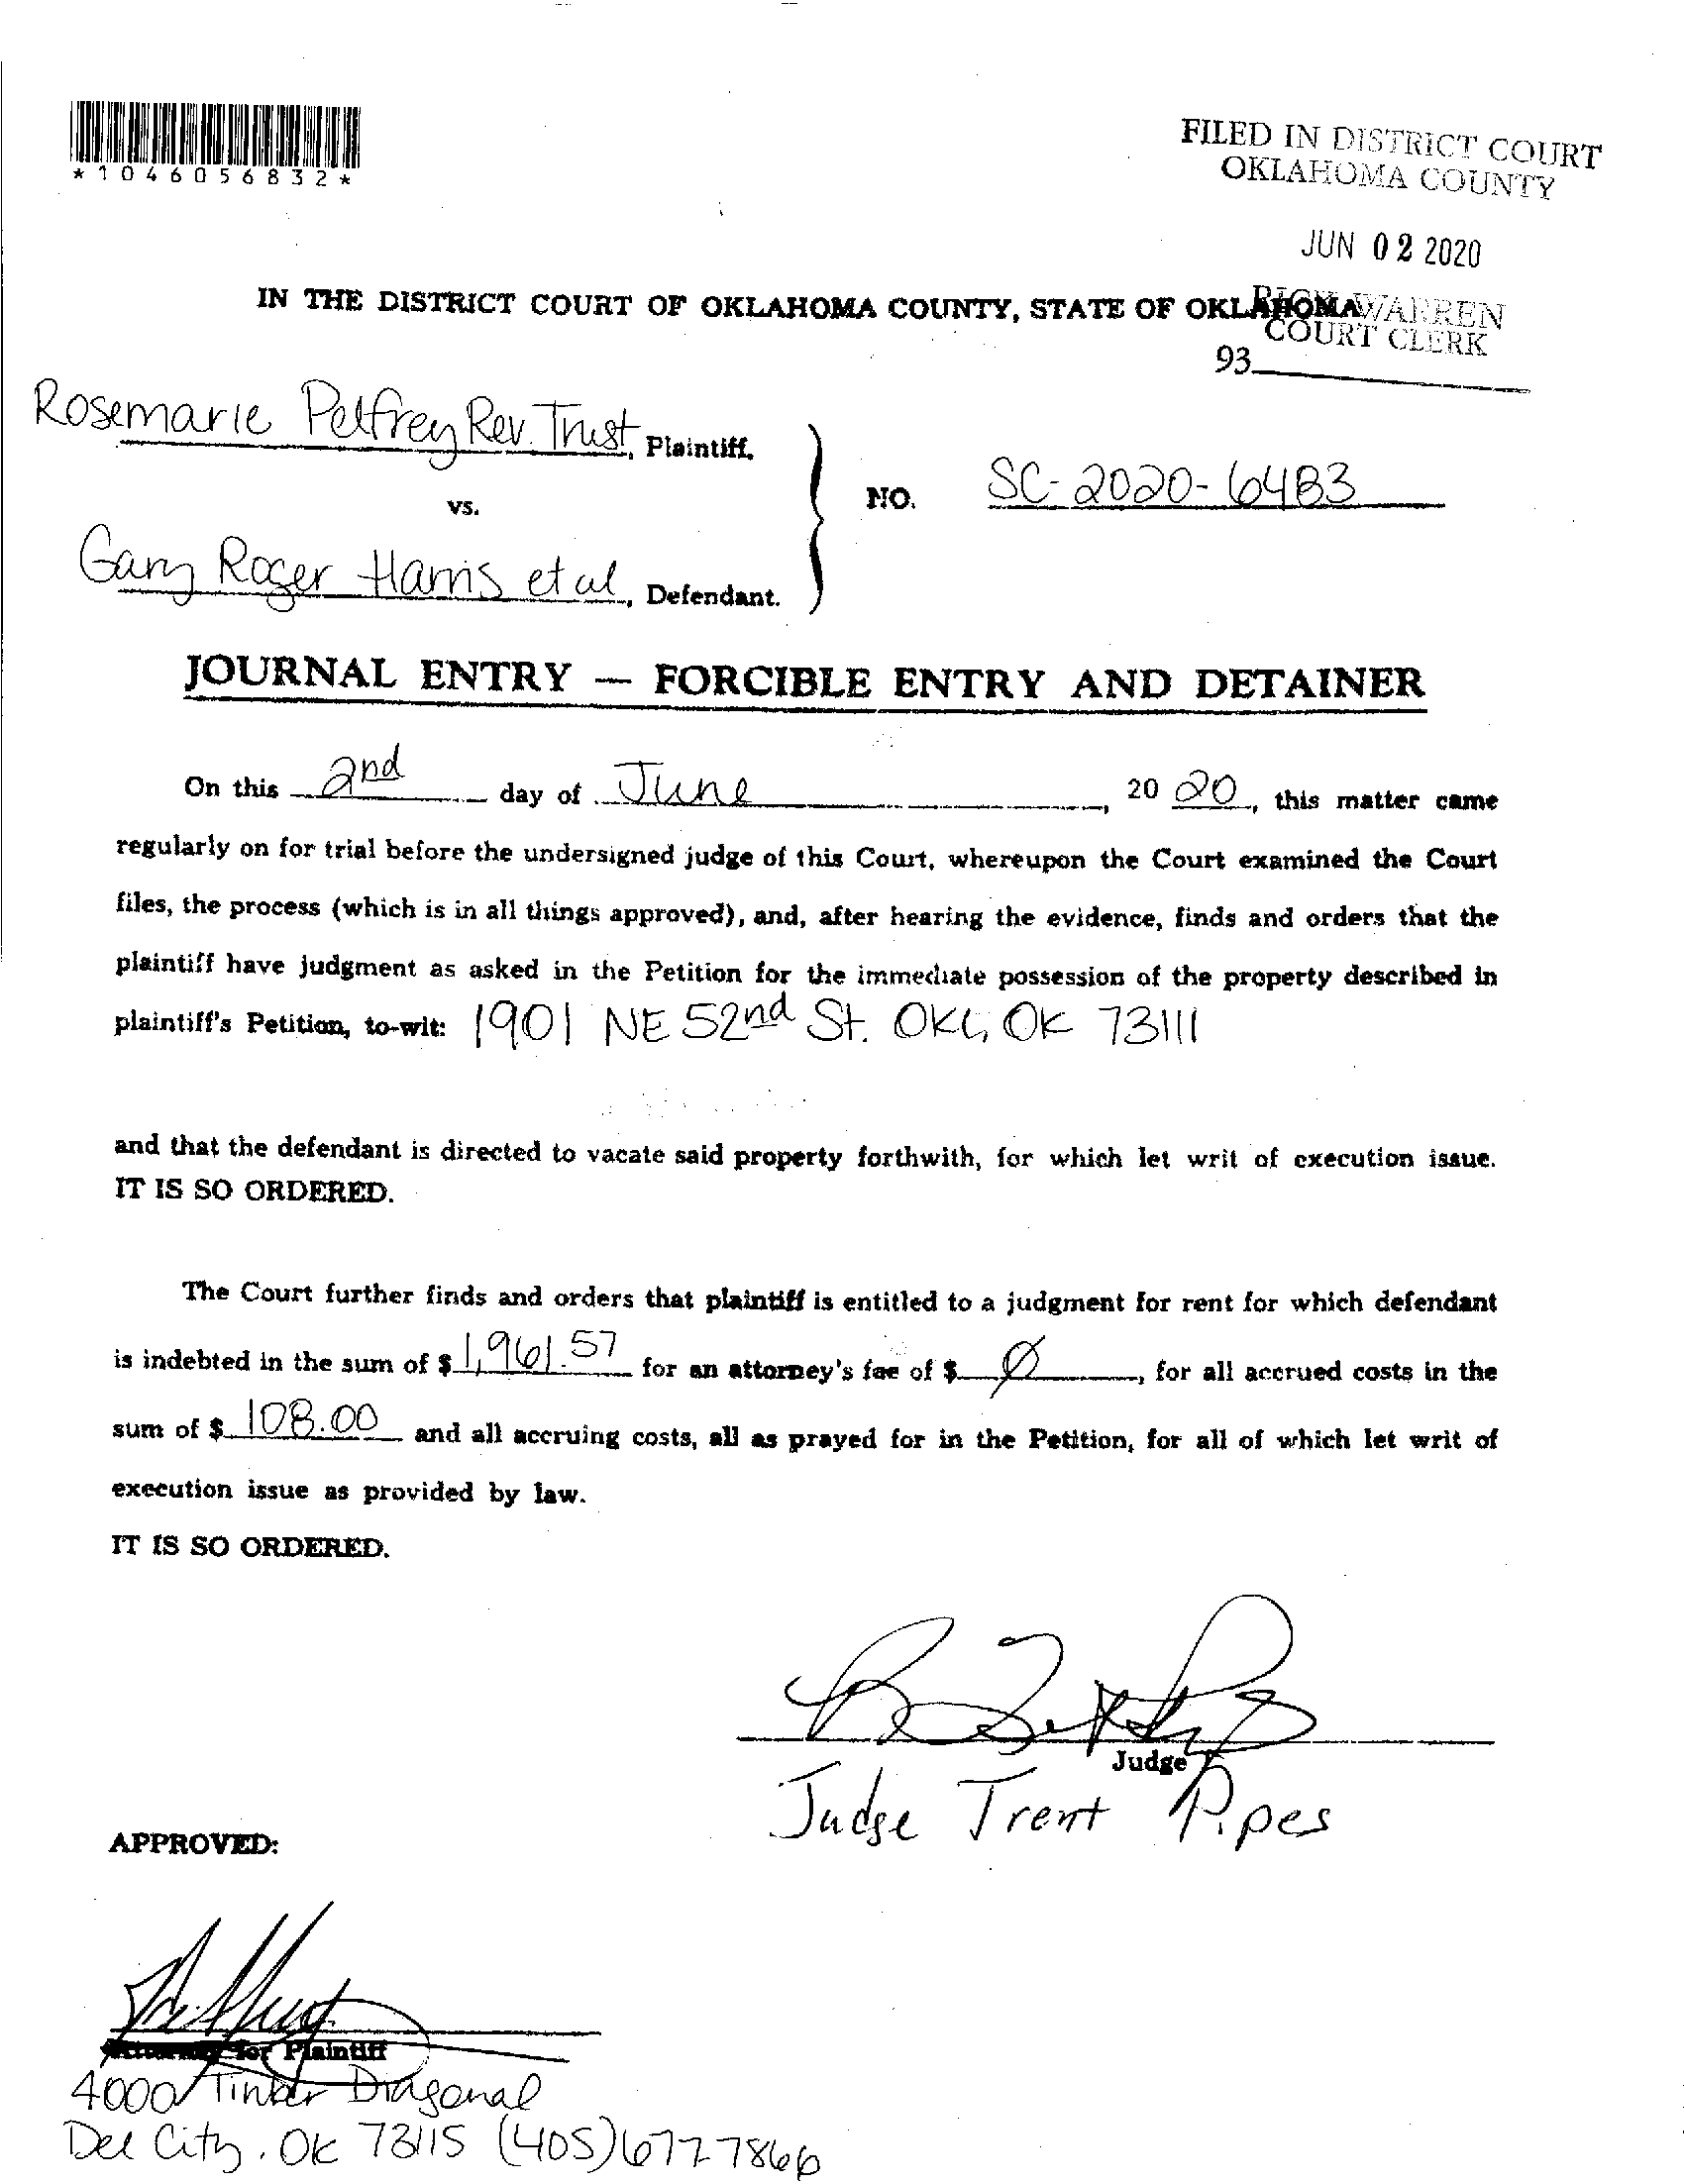 *1046056832*
FILED IN DISTRICT COURT
OKLAHOMA COUNTY
JUN 02 2020
RICK WARREN
COURT CLERK
93
IN THE DISTRICT COURT OF OKLAHOMA COUNTY, STATE OF OKLAHOMA
Rosemarie Pelfrey Rev. Trust, Plaintiff,
vs.
NO. SC-2020-6483
Gary Roger Harris et al, Defendant.
JOURNAL ENTRY — FORCIBLE ENTRY AND DETAINER
On this 2nd day of June, 20 20, this matter came
regularly on for trial before the undersigned judge of this Court, whereupon the Court examined the Court
files, the process (which is in all things approved), and, after hearing the evidence, finds and orders that the
plaintiff have judgment as asked in the Petition for the immediate possession of the property described in
plaintiff's Petition, to-wit: 1901 NE 52nd St. OKC, OK 73111
and that the defendant is directed to vacate said property forthwith, for which let writ of execution issue.
IT IS SO ORDERED.
The Court further finds and orders that plaintiff is entitled to a judgment for rent for which defendant
is indebted in the sum of $1,961.57 for an attorney's fee of $ Ø, for all accrued costs in the
sum of $ 108.00 and all accruing costs, all as prayed for in the Petition, for all of which let writ of
execution issue as provided by law.
IT IS SO ORDERED.
Judge
Judge Trent Pipes
APPROVED:
Attorney for Plaintiff
4000 Tinker Diagonal
Del City, OK 73115 (405)677-7866